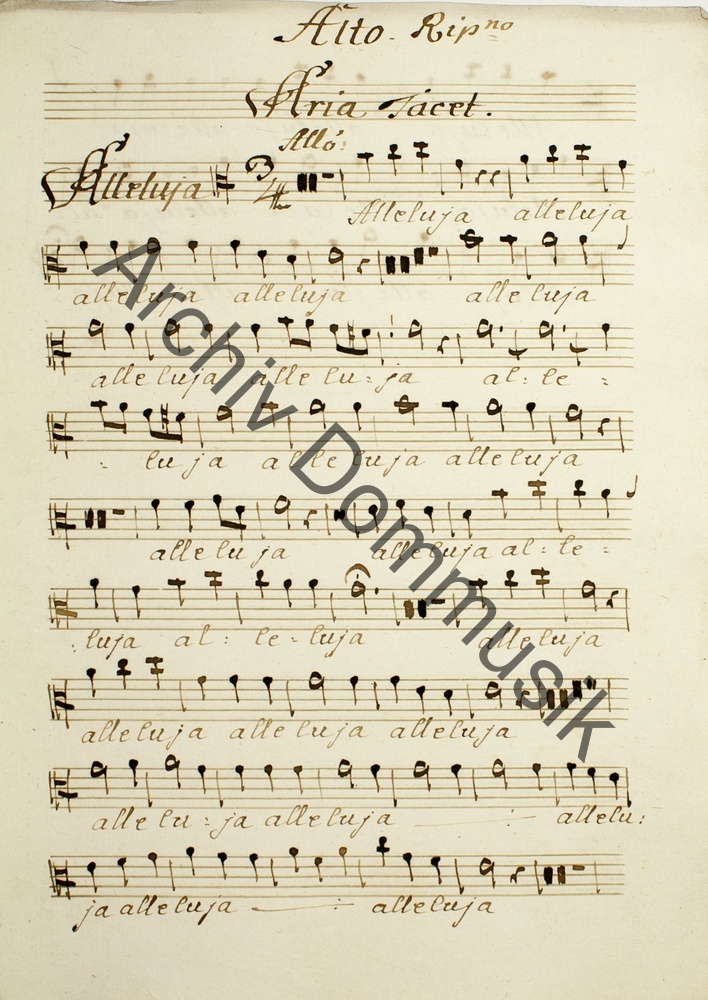 Alto. Rip:no
Aria Tacet.
Allo:
Alleluja 3/4
Alleluja alleluja
alleluja alleluja alleluja
alleluja allelu = ja al: le =
: luja alleluja alleluja
alleluja alleluja al: le =
: luja al: le = luja alleluja
alleluja alleluja alleluja
allelu = ja alleluja — : — allelu:
ja alleluja — : alleluja
Archiv Dommusik